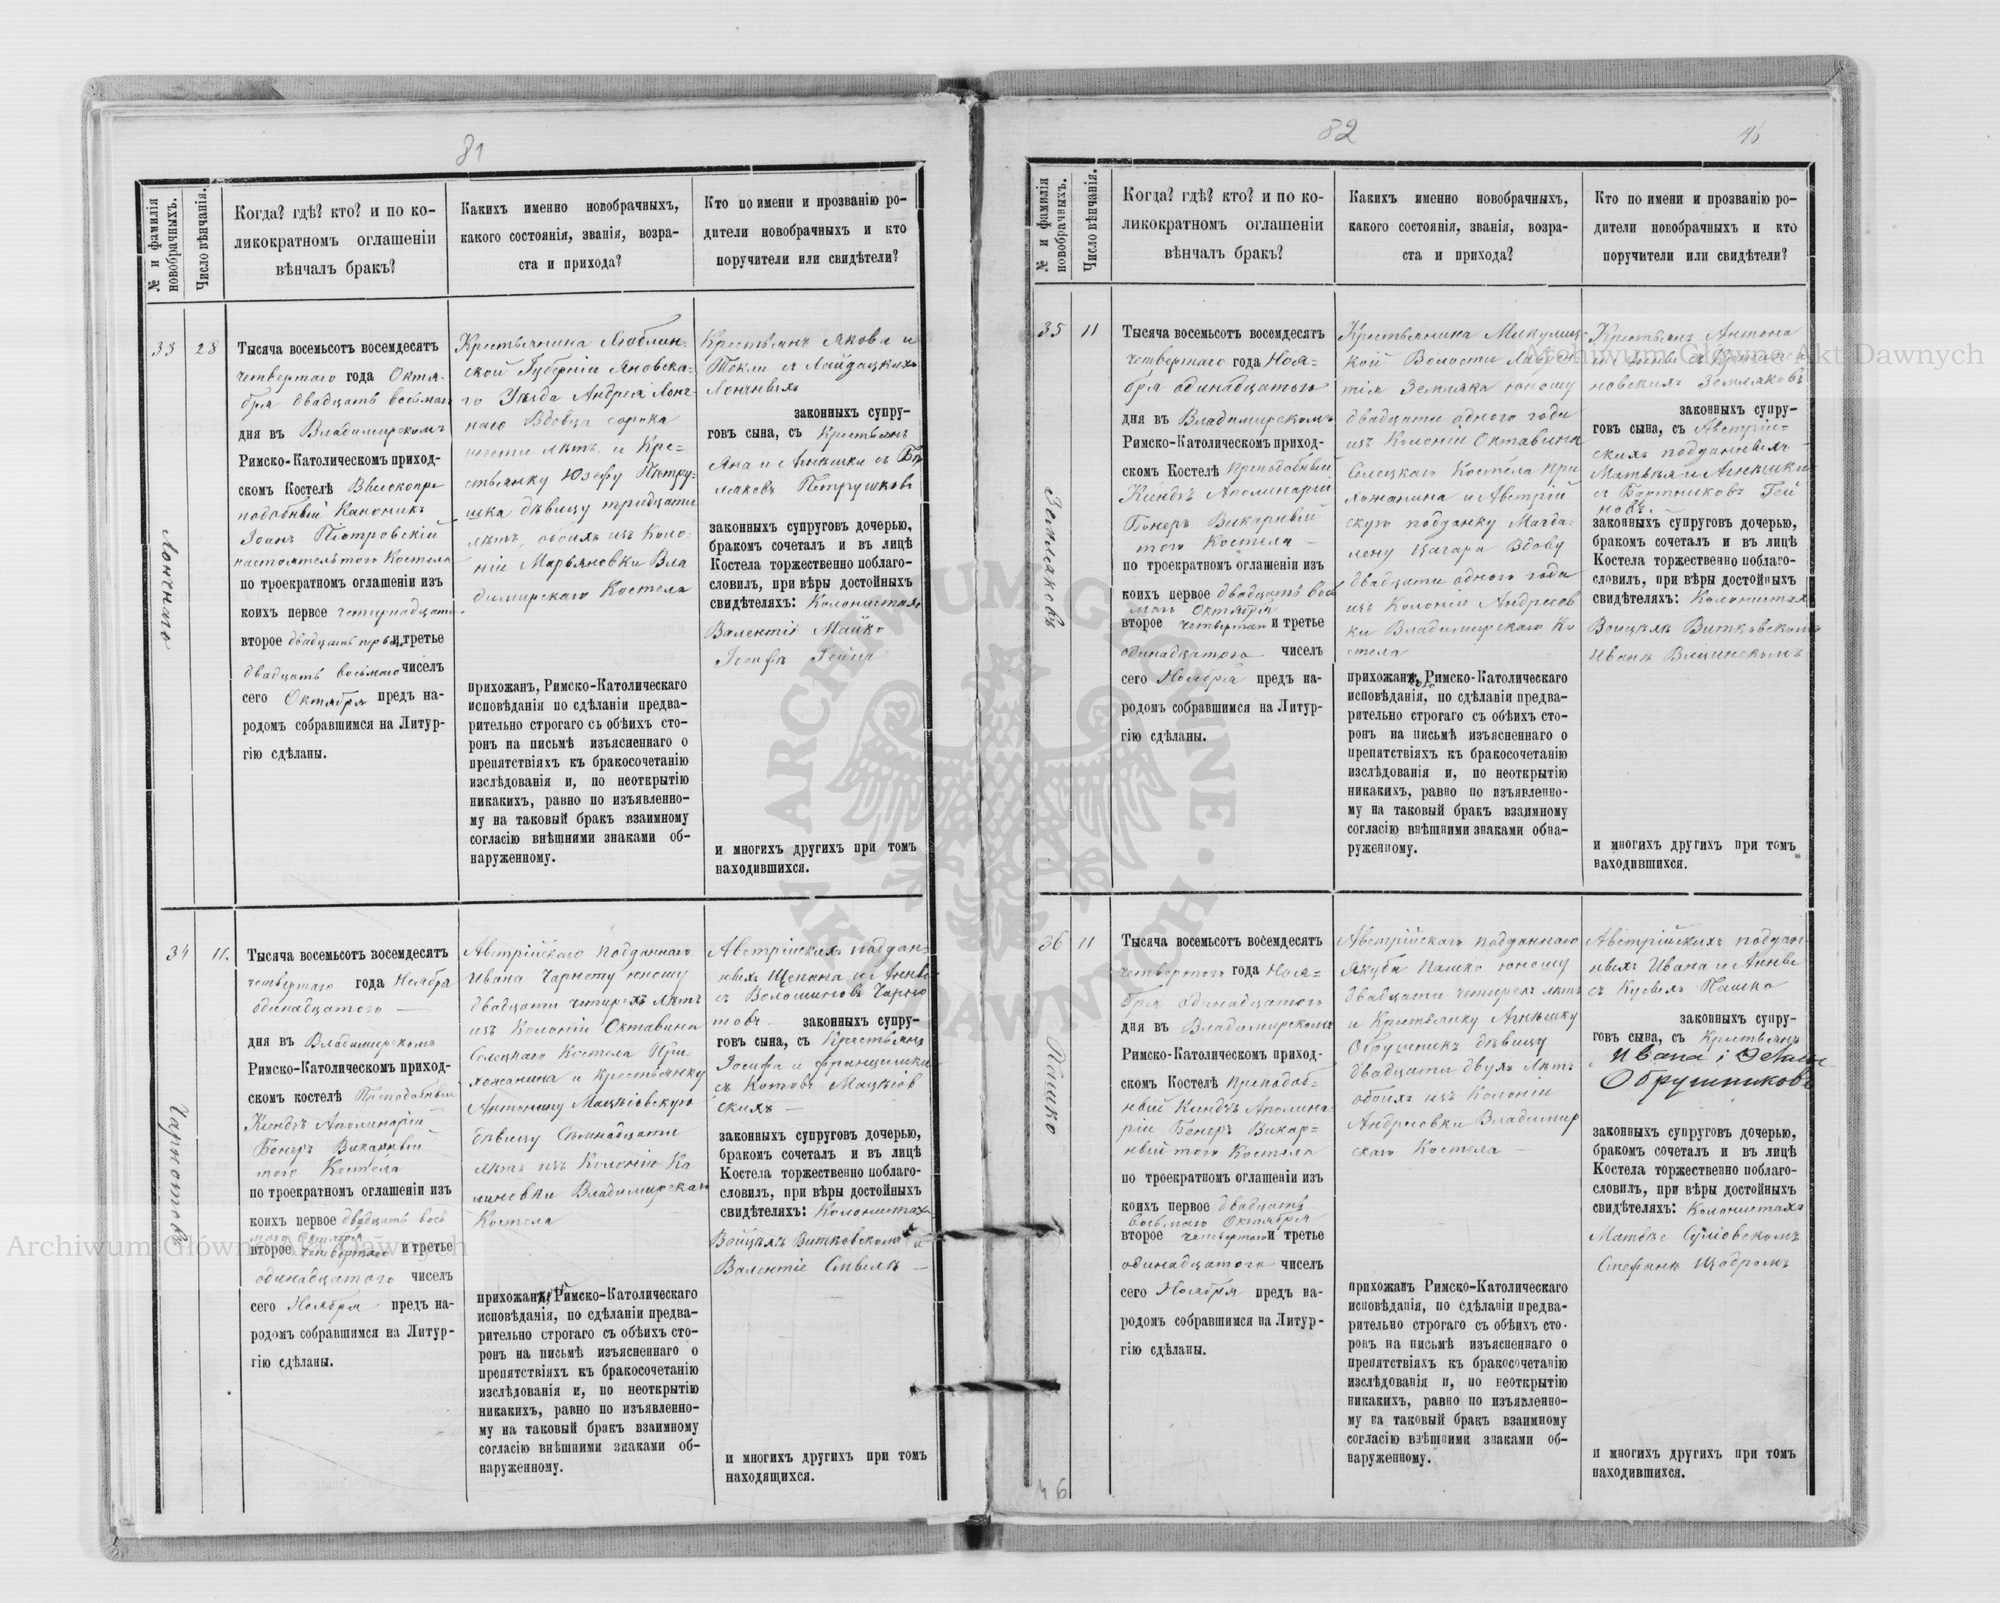 81
№ и фамилія новобрачныхъ.
Число вѣнчанія.
Когда? гдѣ? кто? и по ко-
ликократномъ оглашеніи
вѣнчалъ бракъ?
Какихъ именно новобрачныхъ,
какого состоянія, званія, возра-
ста и прихода?
Кто по имени и прозванію ро-
дители новобрачныхъ и кто
поручители или свидѣтели?
33
28
Лончнаго
Тысяча восемьсотъ восемдесятъ
четвертаго года Октя-
бря двадцать восьмаго
дня въ Владимирскомъ
Римско-Католическомъ приход-
скомъ Костелѣ Высокопре
подобный Каноникъ
Іоанъ Піотровскій
настоятель того Костела
по троекратномъ оглашеніи изъ
коихъ первое четырнадцатаго
второе двадцать перваго, третье
двадцать восьмаго чиселъ
сего Октября предъ на-
родомъ собравшимся на Литур-
гію сдѣланы.
Крестьянина Люблин-
ской Губерніи Яновска-
го Уѣзда Андрея Лонч-
наго Вдовца сорока
шести лѣтъ, и Кре-
стьянку Юзефу Петру-
шка дѣвицу тридцати
лѣтъ, обоихъ изъ Коло-
ніи Марьяновки Вла
димирскаго Костела
прихожанъ, Римско-Католическаго
исповѣданія, по сдѣланіи предва-
рительно строгаго съ обѣихъ сто-
ронъ на письмѣ изъясненнаго о
препятствіяхъ къ бракосочетанію
изслѣдованія и, по неоткрытію
никакихъ, равно по изъявленно-
му на таковый бракъ взаимному
согласію внѣшними знаками об-
наруженному.
Крестьянъ Якова и
Текли съ Лайдацкихъ
Лончныхъ
законныхъ супру-
говъ сына, съ Крестьянъ
Яна и Агнѣшки съ
Петрушковъ
законныхъ супруговъ дочерью,
бракомъ сочеталъ и въ лицѣ
Костела торжественно поблаго-
словилъ, при вѣры достойныхъ
свидѣтеляхъ: Колонистахъ
Валентіѣ Майко
Іосифѣ Гейна
и многихъ другихъ при томъ
находившихся.
34
11.
Чарнотовъ
Тысяча восемьсотъ восемдесятъ
четвертаго года Ноября
одинадцатого —
дня въ Владимирскомъ
Римско-Католическомъ приход-
скомъ костелѣ Преподобный
Ксендзъ Аполинарій
Бонеръ Викарный
того Костела
по троекратномъ оглашеніи изъ
коихъ первое двадцать вось
маго Октября
второе четвертаго и третье
одинадцатого чиселъ
сего Ноября предъ на-
родомъ собравшимся на Литур-
гію сдѣланы.
Австрійскаго подданнаго
Ивана Чарноту юношу
двадцати четырехъ лѣтъ
изъ Колоніи Октавина
Селецкаго Костела При-
хожанина и Крестьянку
Антонину Мацѣіовскую
дѣвицу Семнадцати
лѣтъ изъ Колоніи Ка
линовки Владимирскаго
Костела
прихожанъ, Римско-Католическаго
исповѣданія, по сдѣланіи предва-
рительно строгаго съ обѣихъ сто-
ронъ на письмѣ изъясненнаго о
препятствіяхъ къ бракосочетанію
изслѣдованія и, по неоткрытію
никакихъ, равно по изъявленно-
му на таковый бракъ взаимному
согласію внѣшними знаками об-
наруженному.
Австрійскихъ поддан-
ныхъ Щепана и Анны
съ Волошиновъ Чарно
товъ законныхъ супру-
говъ сына, съ Крестьянъ
Іосифа и Францишки
съ Котовъ Мацѣіов
скихъ —
законныхъ супруговъ дочерью,
бракомъ сочеталъ и въ лицѣ
Костела торжественно поблаго-
словилъ, при вѣры достойныхъ
свидѣтеляхъ: Колонистахъ
Войцѣхѣ Витковскомъ и
Валентіе —
и многихъ другихъ при томъ
находящихся.
82
46
№ и фамилія новобрачныхъ.
Число вѣнчанія.
Когда? гдѣ? кто? и по ко-
ликократномъ оглашеніи
вѣнчалъ бракъ?
Какихъ именно новобрачныхъ,
какого состоянія, званія, возра-
ста и прихода?
Кто по имени и прозванію ро-
дители новобрачныхъ и кто
поручители или свидѣтели?
35
11
Земляковъ
Тысяча восемьсотъ восемдесятъ
четвертаго года Ноя-
бря одинадцатого
дня въ Владимирскомъ
Римско-Католическомъ приход-
скомъ Костелѣ Преподобный
Ксендзъ Аполинарій
Бонеръ Викарный
того Костела —
по троекратномъ оглашеніи изъ
коихъ первое двадцать вось
маго Октября
второе четвертаго и третье
одинадцатого чиселъ
сего Ноября предъ на-
родомъ собравшимся на Литур-
гію сдѣланы.
Крестьянина Микулиц-
кой Волости Лаврен-
тія Земляка юношу
двадцати одного года
изъ Колоніи Октавина
Селецкаго Костела При
хожанина и Австрій
скую подданку Магда-
лену Цагара Вдову
двадцати одного года
изъ Колоніи Андресов
ки Владимирскаго Ко
стела
прихожанъ, Римско-Католическаго
исповѣданія, по сдѣланіи предва-
рительно строгаго съ обѣихъ сто-
ронъ на письмѣ изъясненнаго о
препятствіяхъ къ бракосочетанію
изслѣдованія и, по неоткрытію
никакихъ, равно по изъявленно-
му на таковый бракъ взаимному
согласію внѣшними знаками обна-
руженному.
Крестьянъ Антона
новскихъ Земляковъ
законныхъ супру-
говъ сына, съ Австрій-
скихъ подданныхъ
Матвѣя и Агнѣшки
съ Бортниковъ Гей
новъ. —
законныхъ супруговъ дочерью,
бракомъ сочеталъ и въ лицѣ
Костела торжественно поблаго-
словилъ, при вѣры достойныхъ
свидѣтеляхъ: Колонистахъ
Войцѣхѣ Витковскомъ
Иванѣ
и многихъ другихъ при томъ
находившихся.
36
11
Пашко
Тысяча восемьсотъ восемдесятъ
четвертого года Ноя-
бря одинадцатого
дня въ Владимирскомъ
Римско-Католическомъ приход-
скомъ Костелѣ Преподоб-
ный Ксендзъ Аполина-
рій Бонеръ Викар-
ный того Костела
по троекратномъ оглашеніи изъ
коихъ первое двадцать
восьмаго Октября
второе четвертаго и третье
одинадцатого чиселъ
сего Ноября предъ на-
родомъ собравшимся на Литур-
гію сдѣланы.
Австрійскаго подданнаго
Якуба Пашко юношу
двадцати четырехъ лѣтъ
и Крестьянку Агнѣшку
Обрушникъ дѣвицу
двадцати двухъ лѣтъ
обоихъ изъ Колоніи
Андресовки Владимир
скаго Костела —
прихожанъ Римско-Католическаго
исповѣданія, по сдѣланіи предва-
рительно строгаго съ обѣихъ сто-
ронъ на письмѣ изъясненнаго о
препятствіяхъ къ бракосочетанію
изслѣдованія и, по неоткрытію
никакихъ, равно по изъявленно-
му на таковый бракъ взаимному
согласію внѣшними знаками об-
наруженному.
Австрійскихъ поддан-
ныхъ Ивана и Анны
съ Пашко
законныхъ супру-
говъ сына, съ Крестьянъ
Ивана і
Обрушниковъ
законныхъ супруговъ дочерью,
бракомъ сочеталъ и въ лицѣ
Костела торжественно поблаго-
словилъ, при вѣры достойныхъ
свидѣтеляхъ: Колонистахъ
Матвѣе Суліовскомъ
Стефанѣ Щодромъ
и многихъ другихъ при томъ
находившихся.
46
Archiwum Główne Akt Dawnych
Archiwum Główne Akt Dawnych
ARCHIWUM GŁÓWNE AKT DAWNYCH